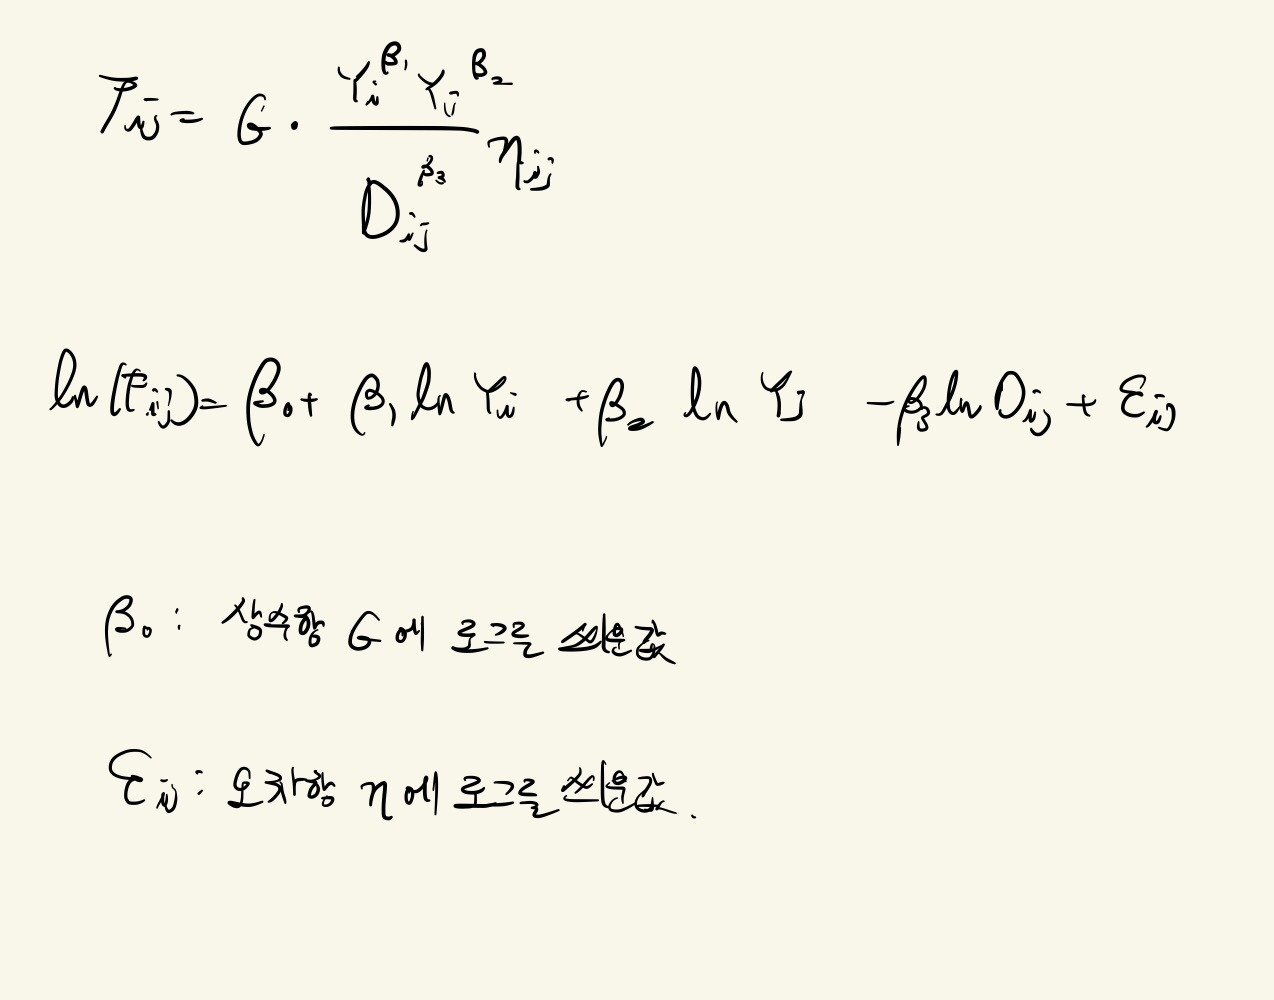 F_ij = G · (Y_i^β₁ Y_j^β₂ / D_ij^β₃) η_ij
ln(F_ij) = β₀ + β₁ ln Y_i + β₂ ln Y_j - β₃ ln D_ij + ε_ij
β₀ : 상수항 G에 로그를 씌운값
ε_ij : 오차항 η에 로그를 씌운값.